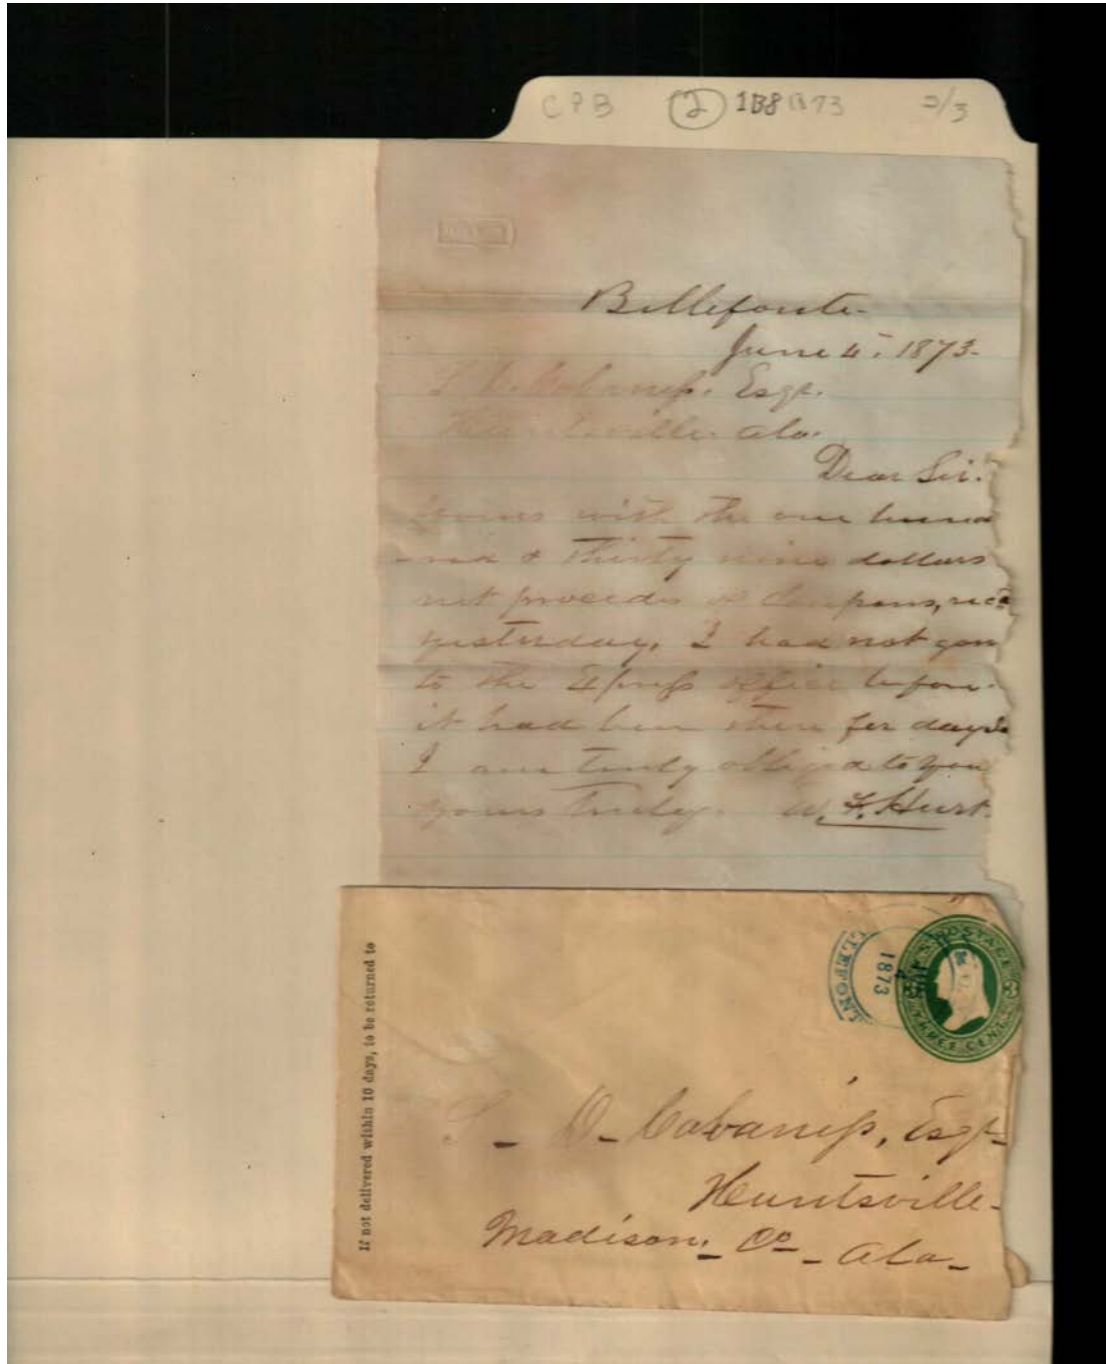 CPB (2) 1B8 1873 2/3
Bellefonte.
June 4, 1873.
S. D. Cabaniss. Esqr.
Huntsville. Ala.
Dear Sir.
Yours with the one hund
-red & thirty nine dollars
net proceeds of Coupons, recd
yesterday. I had not gon
to the Express office before.
it had been there for days
I am truly obliged to you
yours truly. W. F. Hurt.
If not delivered within 10 days, to be returned to
LLEFONT
4
1873
U.S. POSTAGE
3 3
THREE CENTS
S- D- Cabaniss, Esqr-
Huntsville-
Madison- Co- Ala-